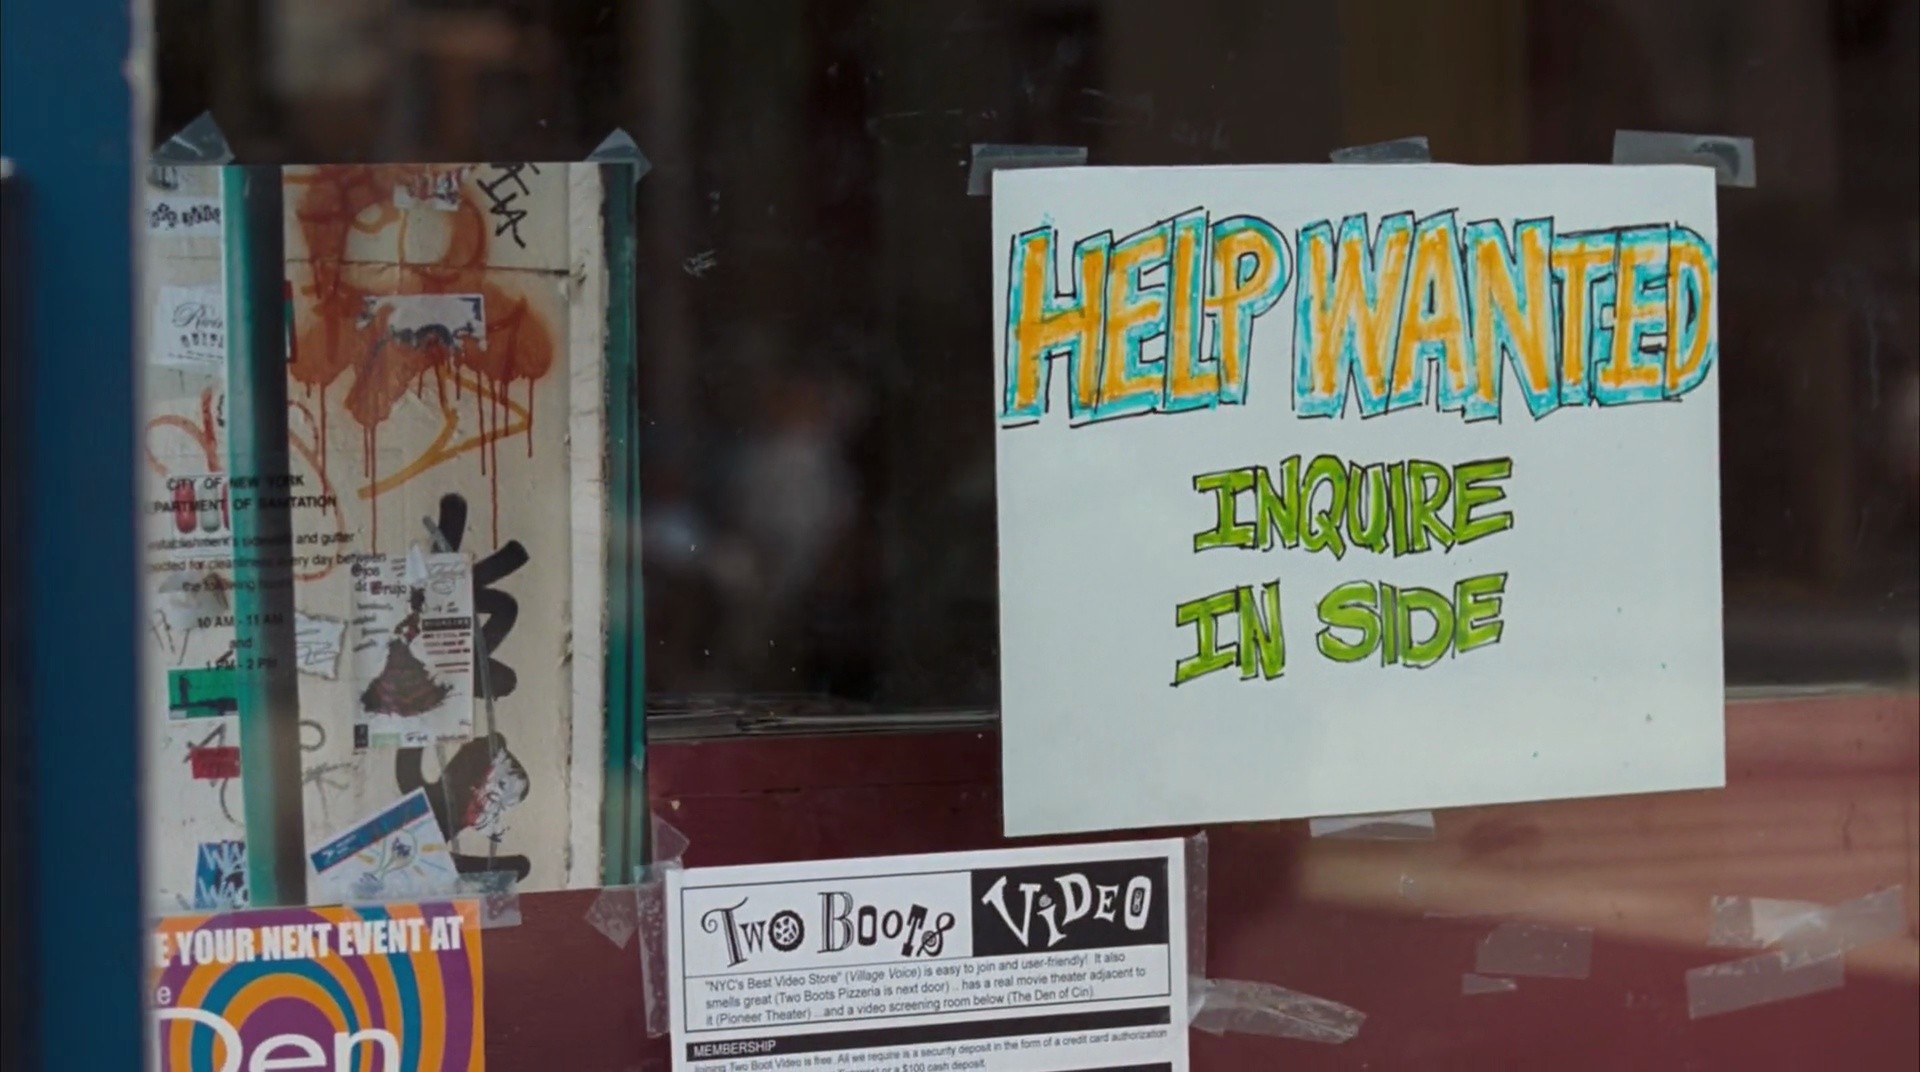 HELP WANTED
INQUIRE
IN SIDE
CITY OF NEW YORK
DEPARTMENT OF SANITATION
establishment's sidewalk and gutter
for cleanliness every day between
the following
10 AM - 11 AM
and
1 PM - 2 PM
YOUR NEXT EVENT AT
Den
TWO BOOTS VIDEO
"NYC's Best Video Store" (Village Voice) is easy to join and user-friendly! It also
smells great (Two Boots Pizzeria is next door) .. has a real movie theater adjacent to
it (Pioneer Theater) ...and a video screening room below (The Den of Cin)
MEMBERSHIP
Joining Two Boot Video is free. All we require is a security deposit in the form of a credit card authorization
or a $100 cash deposit.